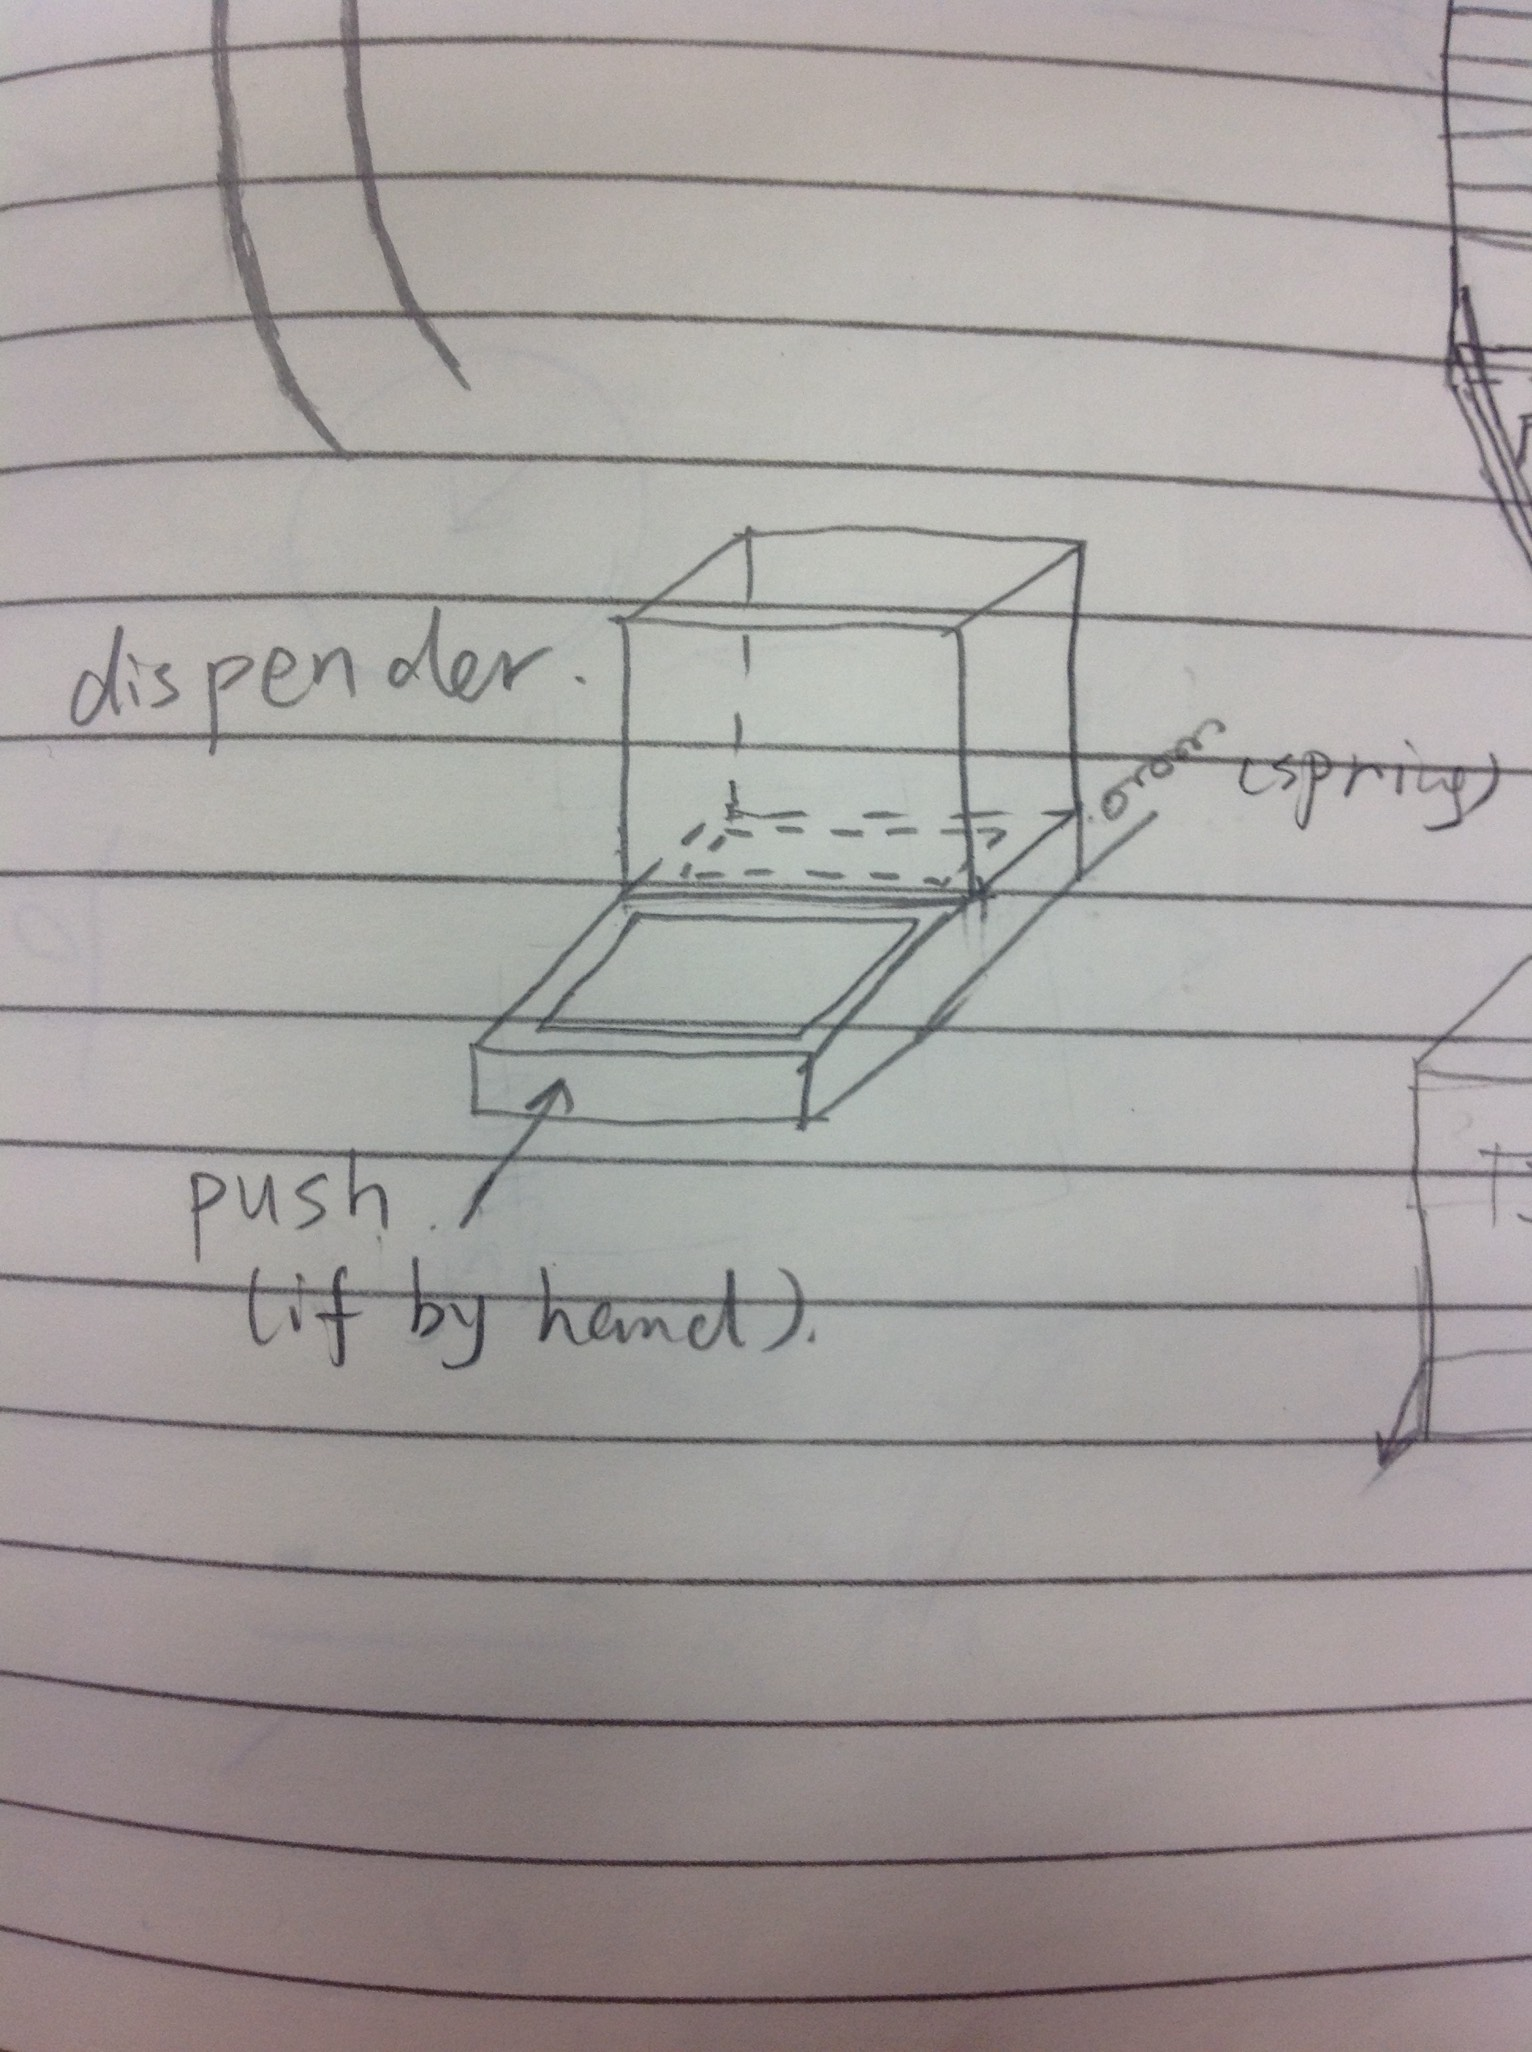 dispender.
(spring)
push.
(if by hand).